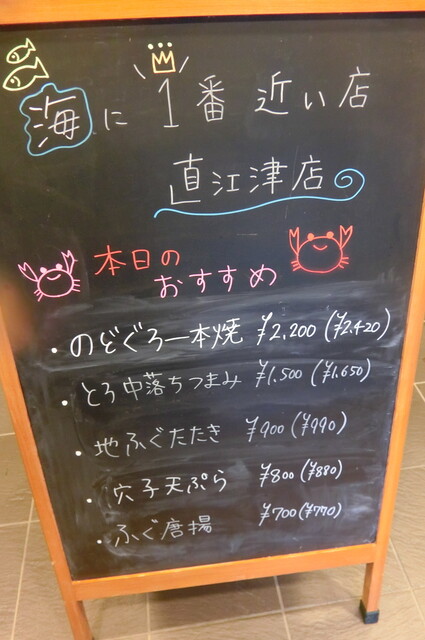 海に1番近い店
直江津店
本日の
おすすめ
・のどぐろ一本焼 ¥2,200 (¥2,420)
・とろ中落ちつまみ ¥1,500 (¥1,650)
・地ふぐたたき ¥900 (¥990)
・穴子天ぷら ¥800 (¥880)
・ふぐ唐揚 ¥700 (¥770)